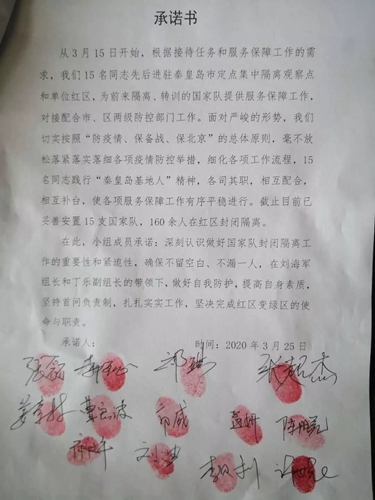 承诺书
从3月15日开始，根据接待任务和服务保障工作的需
求，我们15名同志先后进驻秦皇岛市定点集中隔离观察点
和单位红区，为前来隔离、转训的国家队提供服务保障工作，
对接配合市、区两级防控部门工作。面对严峻的形势，我们
切实按照“防疫情、保备战、保北京”的总体原则，毫不放
松落紧落实落细各项疫情防控举措，细化各项工作流程，15
名同志践行“秦皇岛基地人”精神，各司其职，相互配合，
相互补台，使各项服务保障工作有序平稳进行。截止目前已
妥善安置15支国家队，160余人在红区封闭隔离。
在此，小组成员承诺：深刻认识做好国家队封闭隔离工
作的重要性和紧迫性，确保不留空白、不漏一人，在刘海军
组长和丁乐副组长的带领下，做好自我防护，提高自身素质，
坚持首问负责制，扎扎实实工作，坚决完成红区变绿区的使
命与职责。
承诺人： 时间：2020年3月25日